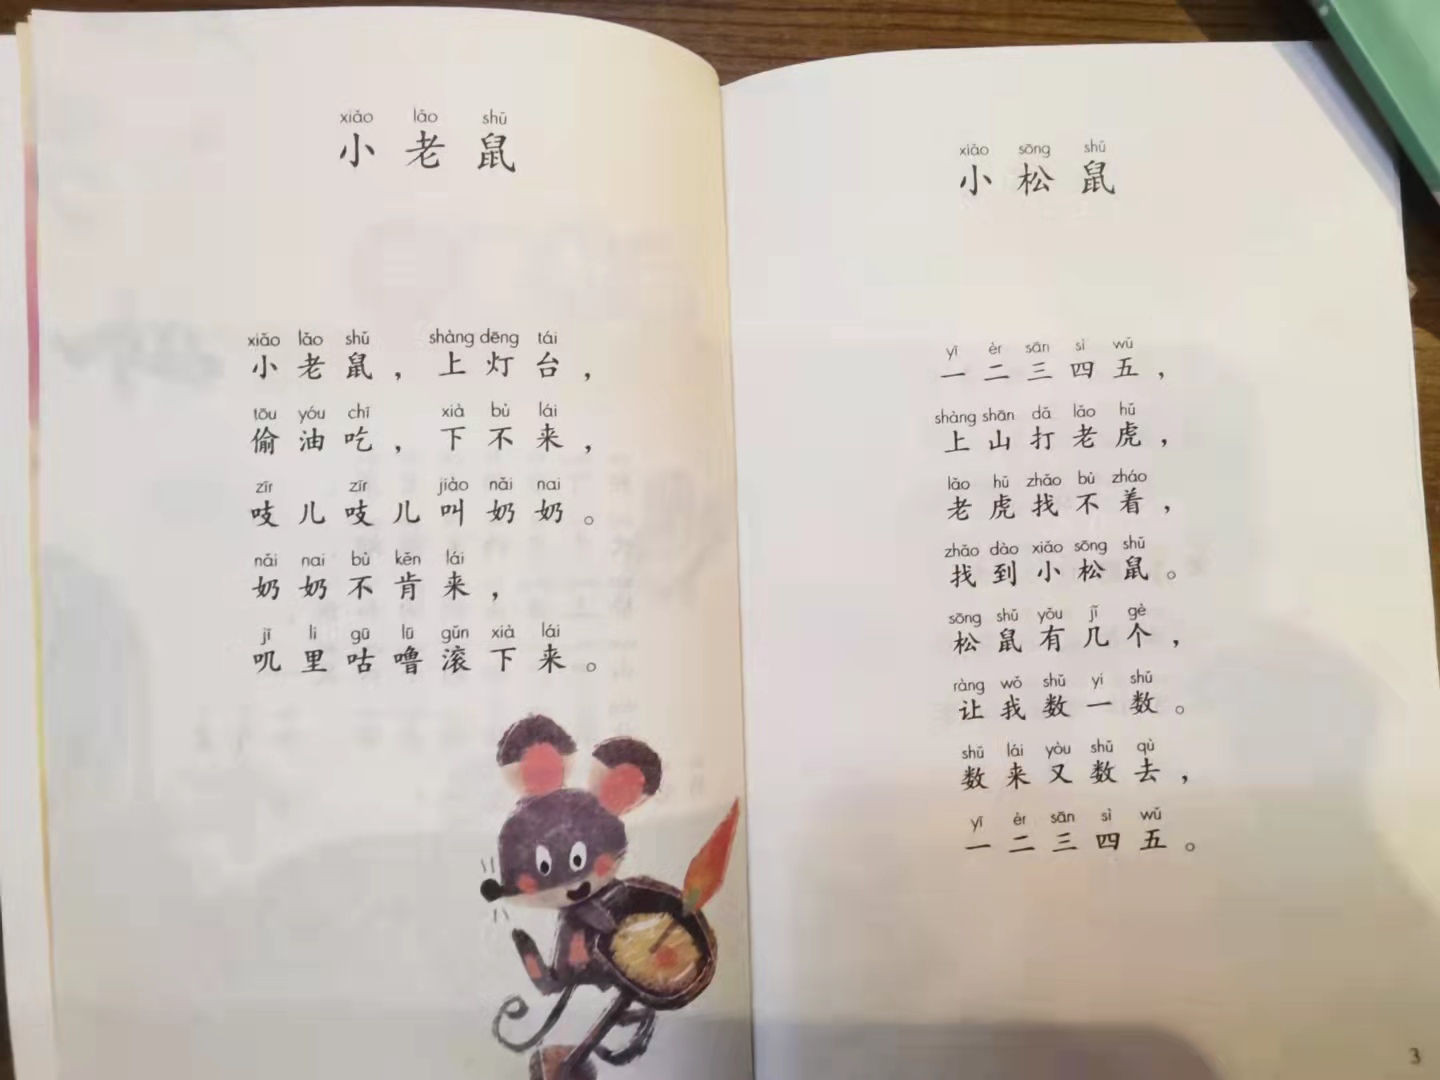 xiǎo lǎo shǔ
小老鼠
xiǎo lǎo shǔ shàng dēng tái
小老鼠，上灯台，
tōu yóu chī xià bù lái
偷油吃，下不来，
zīr zīr jiào nǎi nai
吱儿吱儿叫奶奶。
nǎi nai bù kěn lái
奶奶不肯来，
jī li gū lū gǔn xià lái
叽里咕噜滚下来。
xiǎo sōng shǔ
小松鼠
yī èr sān sì wǔ
一二三四五，
shàng shān dǎ lǎo hǔ
上山打老虎，
lǎo hǔ zhǎo bù zháo
老虎找不着，
zhǎo dào xiǎo sōng shǔ
找到小松鼠。
sōng shǔ yǒu jǐ gè
松鼠有几个，
ràng wǒ shǔ yi shǔ
让我数一数。
shǔ lái yòu shǔ qù
数来又数去，
yī èr sān sì wǔ
一二三四五。
3